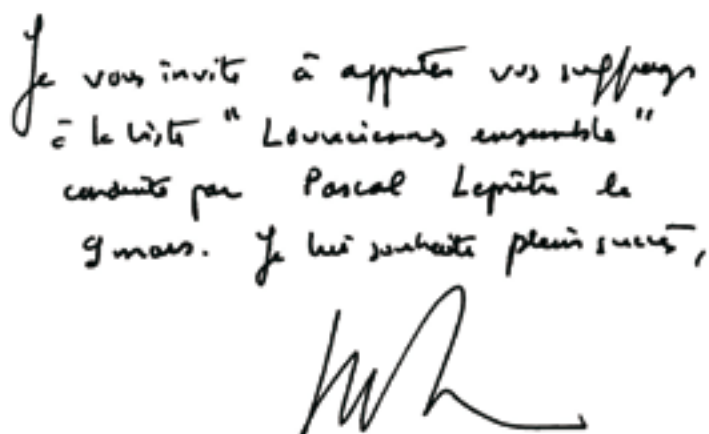 Je vous invite à apporter vos suffrages
à la liste "Louveciennes ensemble"
conduite par Pascal Leprêtre le
9 mars. Je lui souhaite plein succès,